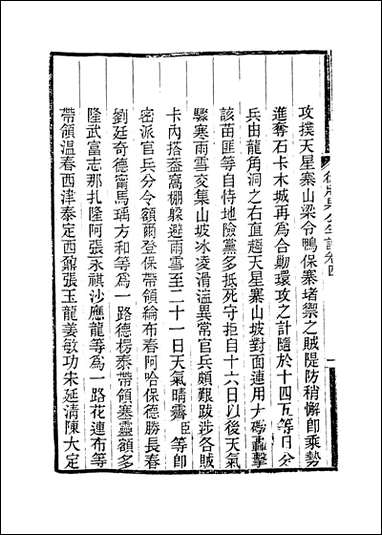 攻撲天星寨山梁令鴨保寨堵禦之賊隄防稍懈卽乘勢
進奪石卡木城再為合勦環攻之計隨於十四五等日分
兵由龍角洞之右直趨天星寨山坡對面連用大礮轟擊
該苗匪等自恃地險黨多抵死守拒自十六日以後天氣
驟寒雨雪交集山坡冰凌滑溜異常官兵頗艱跋涉各賊
卡內搭葢窩棚躱避雨雪至二十一日天氣晴霽臣等卽
密派官兵分令額爾登保帶領綸布春阿哈保德勝長春
劉廷奇德甯馬瑀方和等為一路德楞泰帶領塞靈額多
隆武富志那扎隆阿張永祺沙應龍等為一路花連布等
帶領溫春西津泰定西鼐張玉龍姜敏功朱延清陳大定